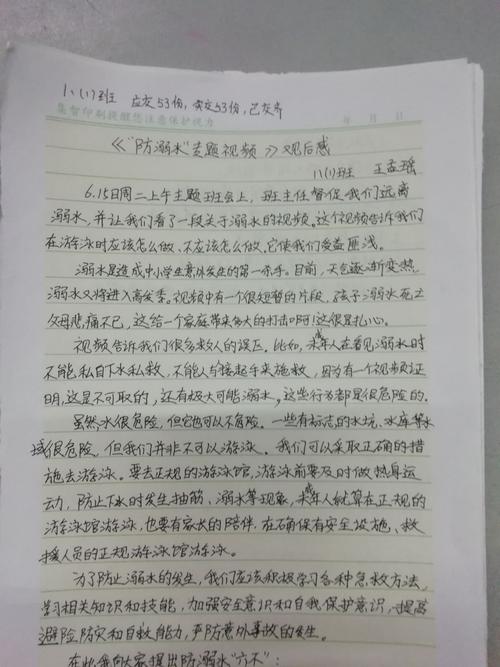 八(1)班 应交53份,实交53份,已交齐
集智印刷提醒您注意保护视力 年 月 日
《“防溺水”专题视频》观后感
八(1)班 王孟瑶
6.15日周二上午主题班会上,班主任督促我们远离
溺水,并让我们看了一段关于溺水的视频。这个视频告诉我们
在游泳时应该怎么做、不应该怎么做。它使我们受益匪浅。
溺水是造成中小学生意外发生的第一杀手。目前,天色逐渐变热,
溺水又将进入高发季。视频中有一个很短暂的片段,孩子溺水死亡
父母悲痛不已,这给一个家庭带来多大的打击啊!这很是扎心。
视频告诉我们很多救人的误区。比如,未成年人在看见溺水时
不能私自下水私救,不能人与接起手来施救,因为有一个视频证
明,这是不可取的,还有极大可能溺水。这些行为都是很危险的。
虽然水很危险,但它也可以不危险。一些有标志的水坑、水库等水
域很危险,但我们并非不可以游泳。我们可以采取正确的措
施去游泳。要去正规的游泳馆,游泳前要及时做热身运
动,防止下水时发生抽筋、溺水等现象,未成年人就算在正规的
游泳馆游泳,也要有家长的陪伴。在确保有安全设施、救
援人员的正规游泳馆游泳。
为了防止溺水的发生,我们应该积极学习各种急救方法,
学习相关知识和技能,加强安全意识和自我保护意识,提高
避险防灾和自救能力,严防意外事故的发生。
在此我向大家提出防溺水“六不”: